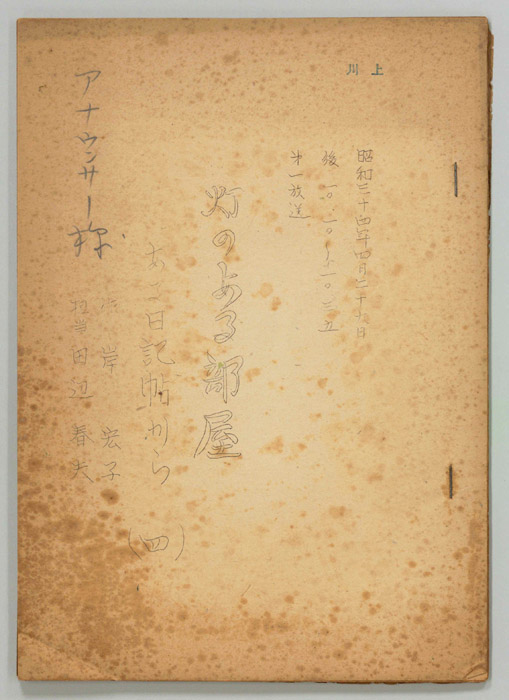 川上
昭和三十四年四月二十　日
後 一〇.二〇～一〇.三五
第一放送
灯のある部屋
ある日記帖から
(四)
岸 宏子
担当 田辺 春夫
アナウンサー様